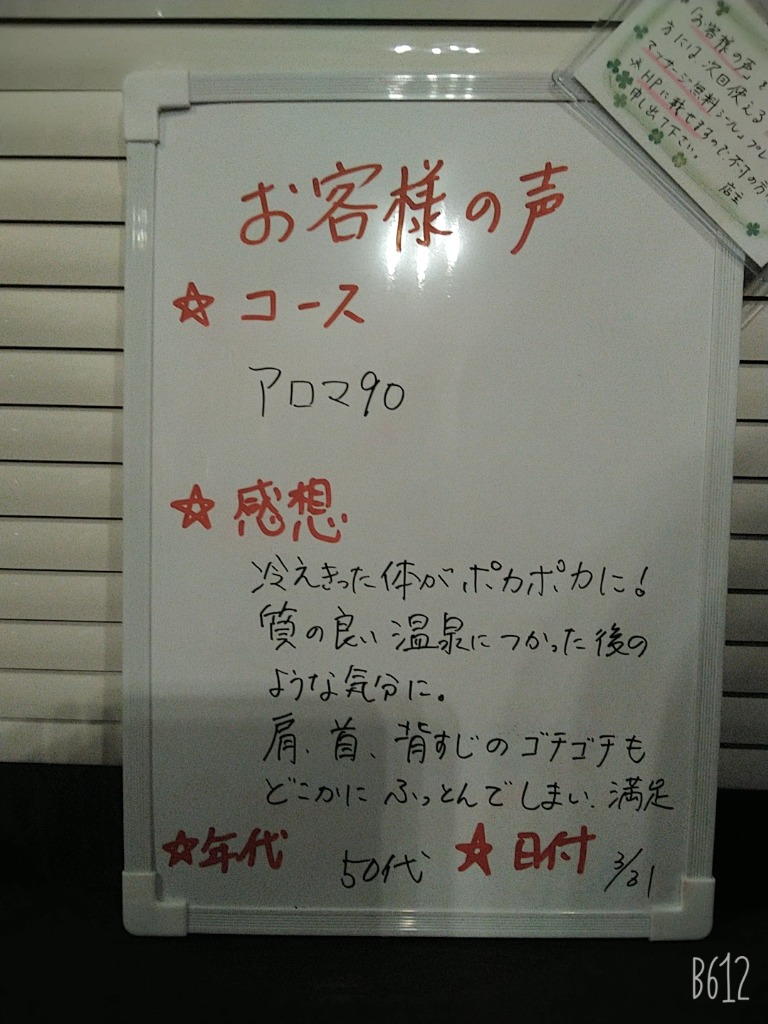 「お客様の声」を
方には次回使える
マッサージ無料シール」プレ
※HPに載せますので、不可の方
申し出下さい。
店主
お客様の声
☆コース
アロマ90
☆感想
冷えきった体がポカポカに!
質の良い温泉につかった後の
ような気分に。
肩、首、背すじのゴチゴチも
どこかにふっとんでしまい、満足
☆年代 50代 ☆日付 3/31
B612